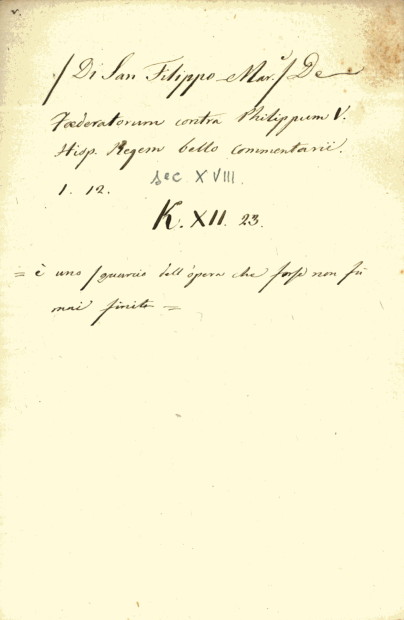 /Di San Filippo Mar.e/ De
Foederatorum contra Philippum V.
Hisp. Regem bello commentarii.
1. 12. sec XVIII.
K. XII. 23.
= è uno squarcio dell'opera che forse non fù
mai finita =